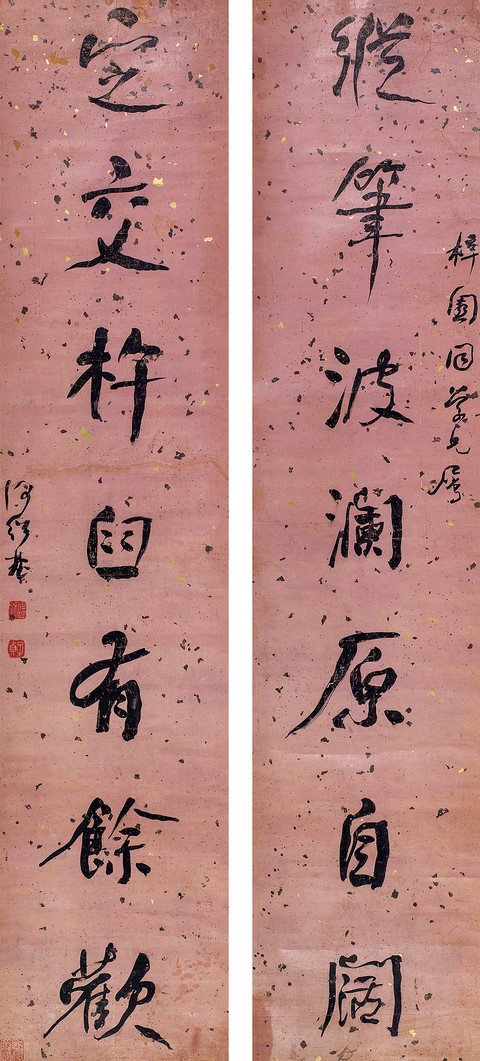 縱筆波瀾原自闊
梓園同學兄屬
定交杵臼有餘歡
何紹基